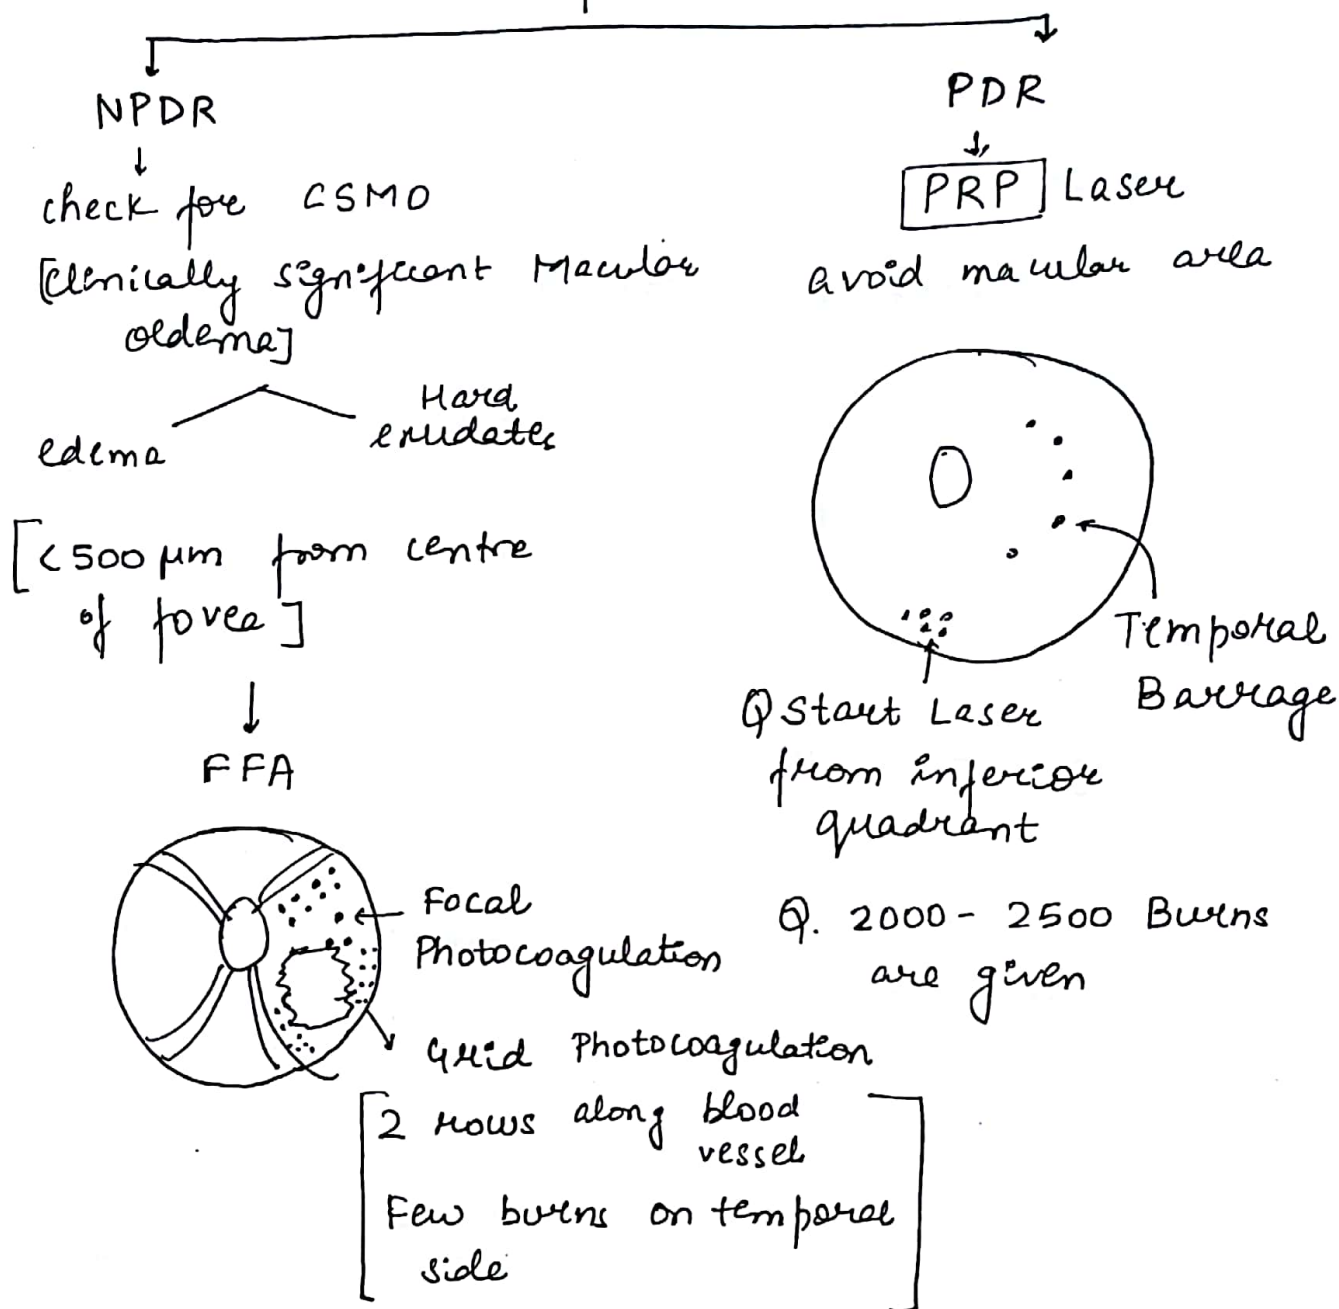 NPDR
check for CSMO
[Clinically significant Macular
oedema]
edema
Hard
exudates
[<500 μm from centre
of fovea]
FFA
Focal
Photocoagulation
Grid Photocoagulation
2 rows along blood
vessel
Few burns on temporal
side
PDR
PRP Laser
avoid macular area
Temporal
Barrage
Q Start Laser
from inferior
quadrant
Q. 2000 - 2500 Burns
are given